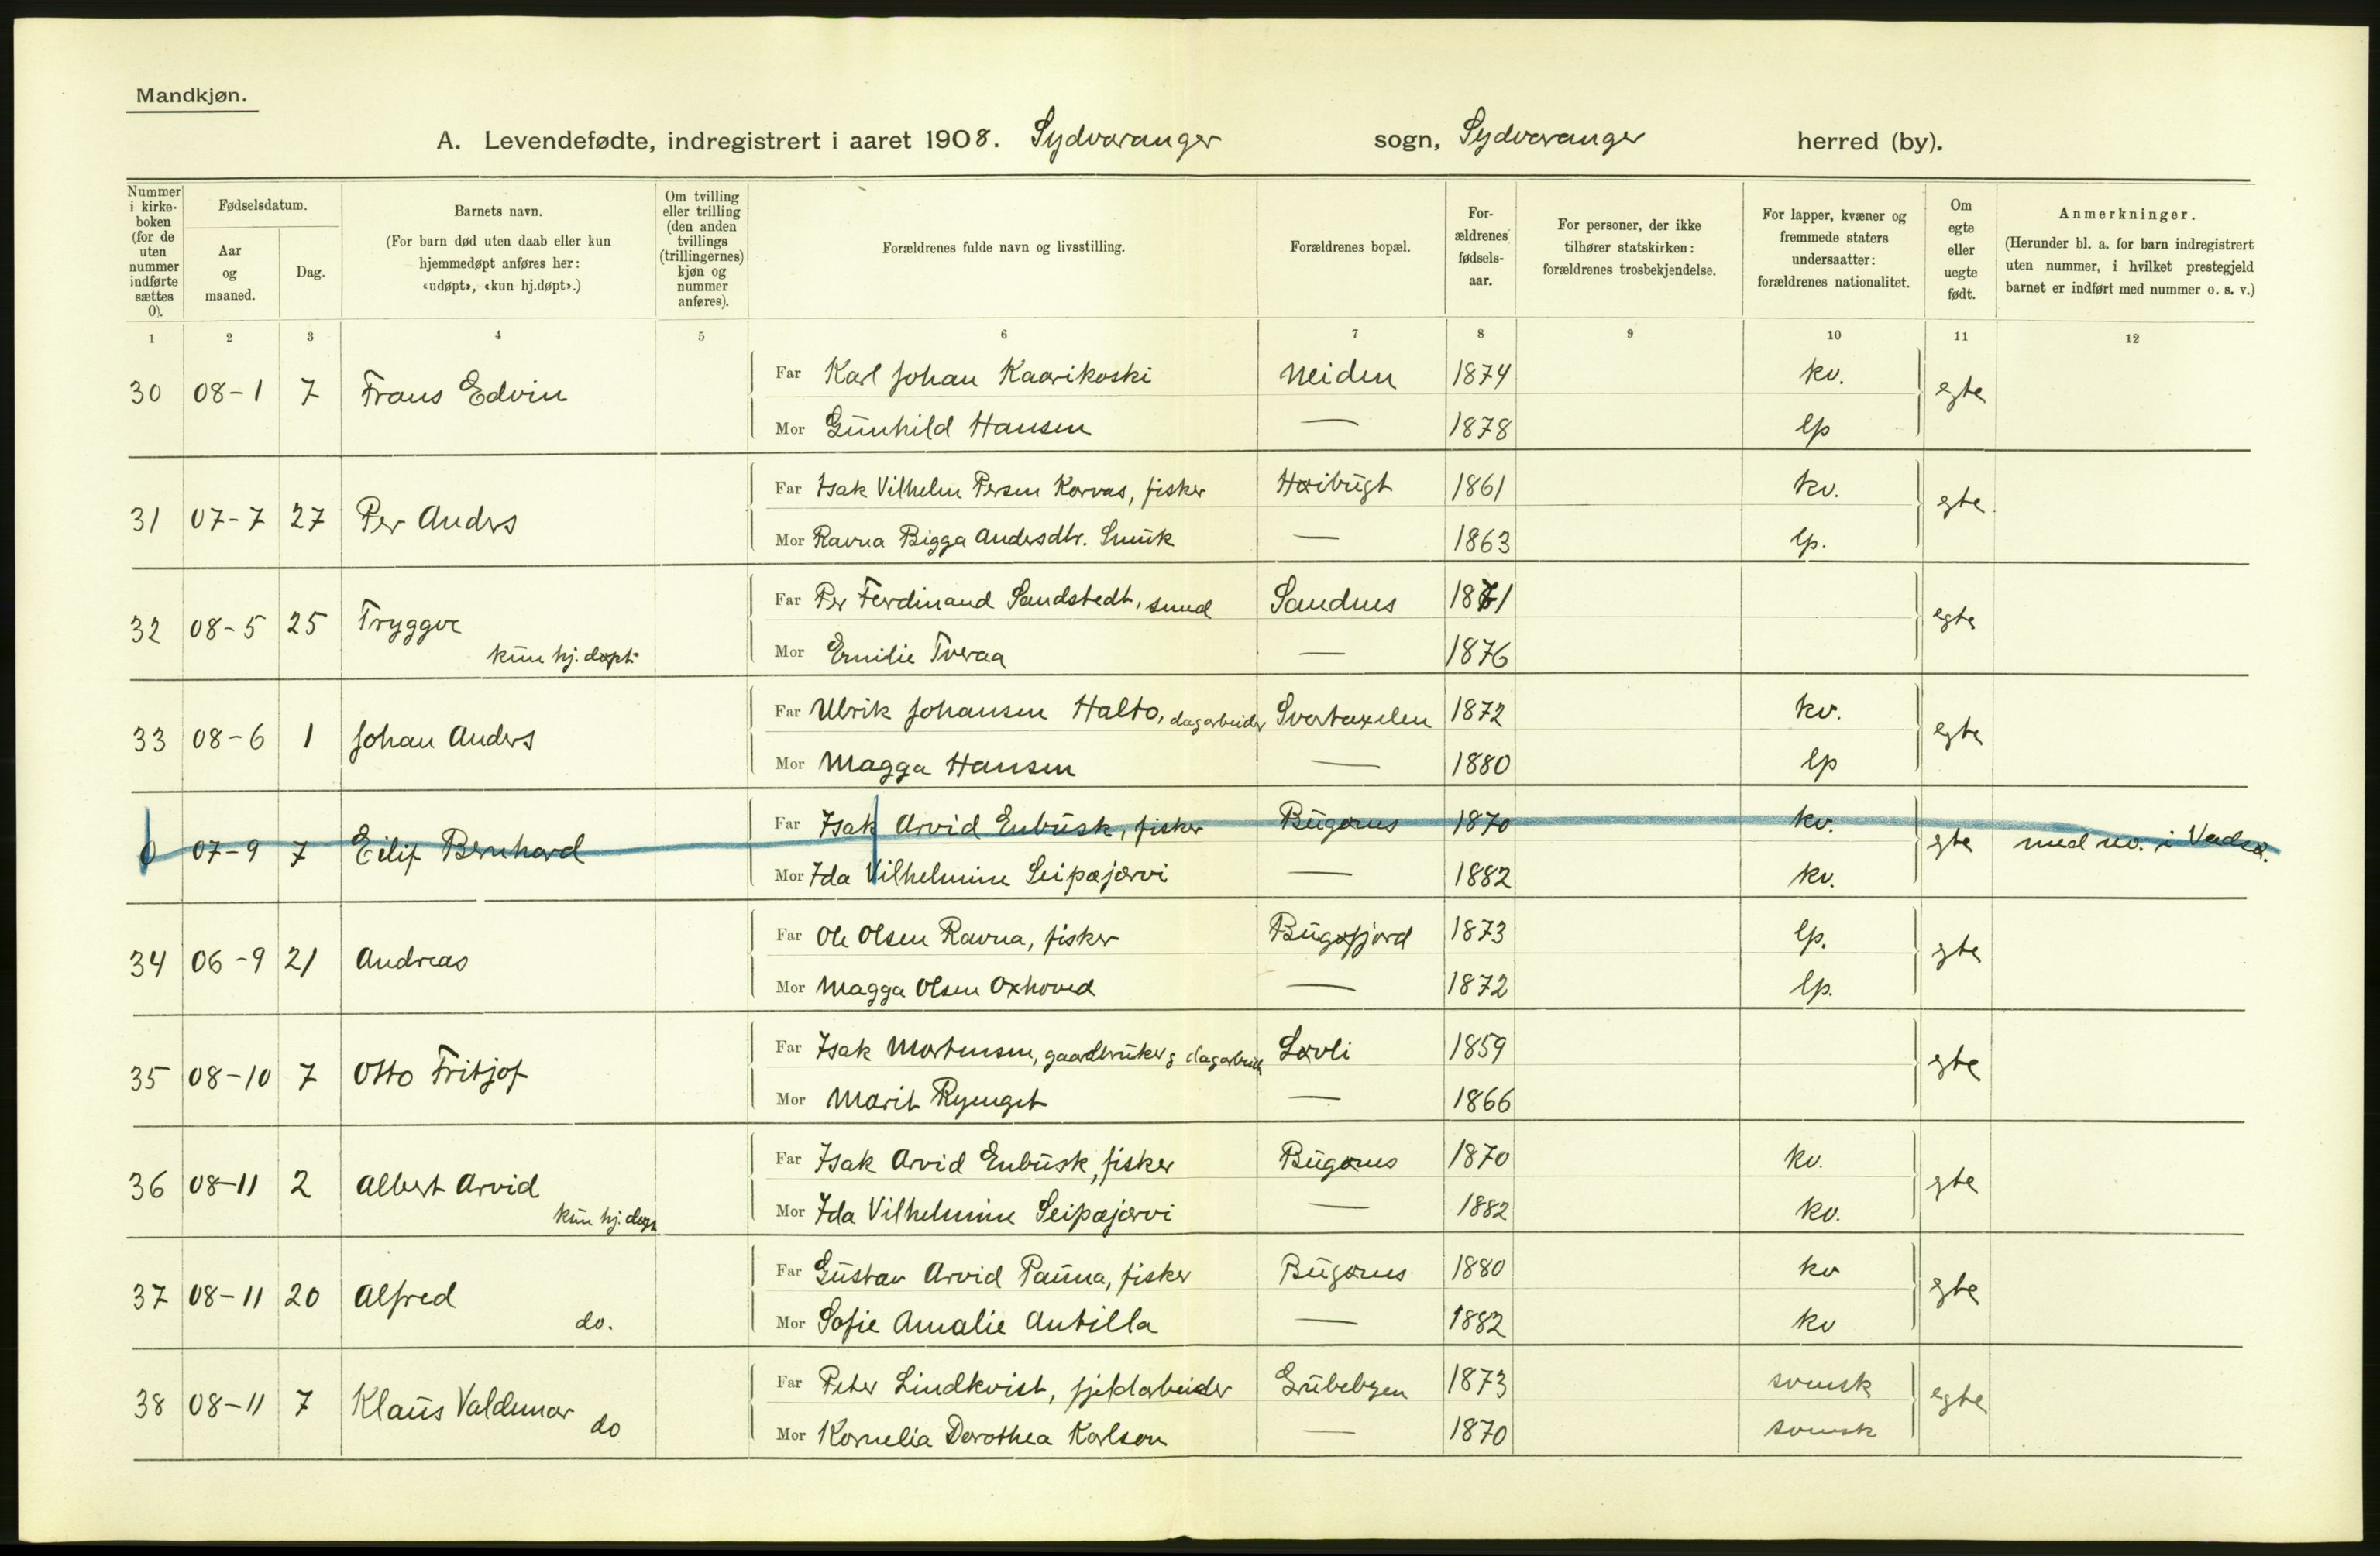 Mandkjøn.
A. Levendefødte, indregistrert i aaret 1908. Sydvaranger sogn, Sydvaranger herred (by).
Nummer i kirkeboken (for de uten nummer indførte sættes 0).
Fødselsdatum.
Aar og maaned.
Dag.
Barnets navn.
(For barn død uten daab eller kun hjemmedøpt anføres her: «udøpt», «kun hj.døpt».)
Om tvilling eller trilling (den anden tvillings (trillingernes) kjøn og nummer anføres).
Forældrenes fulde navn og livsstilling.
Forældrenes bopæl.
Forældrenes fødselsaar.
For personer, der ikke tilhører statskirken: forældrenes trosbekjendelse.
For lapper, kvæner og fremmede staters undersaatter: forældrenes nationalitet.
Om egte eller uegte født.
Anmerkninger.
(Herunder bl. a. for barn indregistrert uten nummer, i hvilket prestegjeld barnet er indført med nummer o. s. v.)
1 2 3 4 5 6 7 8 9 10 11 12
30 08-1 7 Frans Edvin Far Karl Johan Kaarikoski Neiden 1874 kv. egte
Mor Gunhild Hansen — 1878 lp
31 07-7 27 Per Anders Far Isak Vilhelm Persen Korvas, fisker Høibugt 1861 kv. egte
Mor Ravna Bigga Andersdtr. Smuk — 1863 lp.
32 08-5 25 Tryggve kun hj. døpt Far Per Ferdinand Sandstedt, smed Sandnes 1871 egte
Mor Emilie Tveraa — 1876
33 08-6 1 Johan Anders Far Ulrik Johansen Halto, dagarbeider Svartaxelen 1872 kv. egte
Mor Magga Hansen — 1880 lp
0 07-9 7 Eilif Bernhard Far Isak Arvid Enbusk, fisker Bugønes 1870 kv. egte med no. i Vadsø.
Mor Ida Vilhelmine Seipæjærvi — 1882 kv.
34 06-9 21 Andreas Far Ole Olsen Ravna, fisker Bugøfjord 1873 lp. egte
Mor Magga Olsen Oxhoved — 1872 lp.
35 08-10 7 Otto Fritjof Far Isak Mortensen, gaardbruker & dagarbeid Løvli 1859 egte
Mor Marit Rynget — 1866
36 08-11 2 Albert Arvid kun hj. døpt Far Isak Arvid Enbusk, fisker Bugønes 1870 kv. egte
Mor Ida Vilhelmine Seipæjærvi — 1882 kv.
37 08-11 20 Alfred do. Far Gustav Arvid Pauna, fisker Bugønes 1880 kv egte
Mor Sofie Amalie Antilla — 1882 kv
38 08-11 7 Klaus Valdemar do Far Peter Lindkvist, fjeldarbeider Grubebyen 1873 svensk egte
Mor Kornelia Dorothea Karlson — 1870 svensk